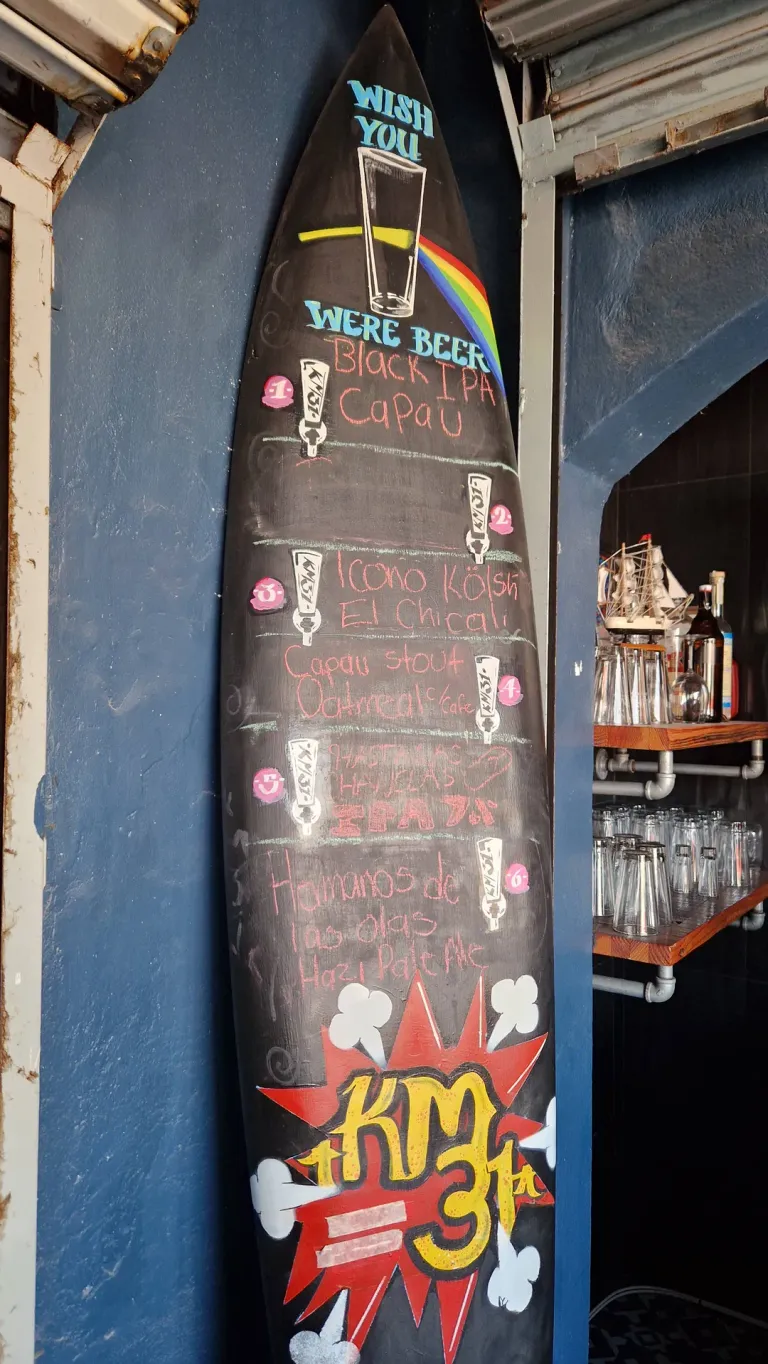 WISH
YOU
WERE BEER
-1-
KM31
Black IPA
Capau
KM31
-2-
-3-
KM31
Icono Kölsh
El Chicali
Capau stout
Oatmeal c/cafe
KM31
-4-
-5-
KM31
IPA 7%
KM31
-6-
las olas
Hazi Pale Ale
KM
31